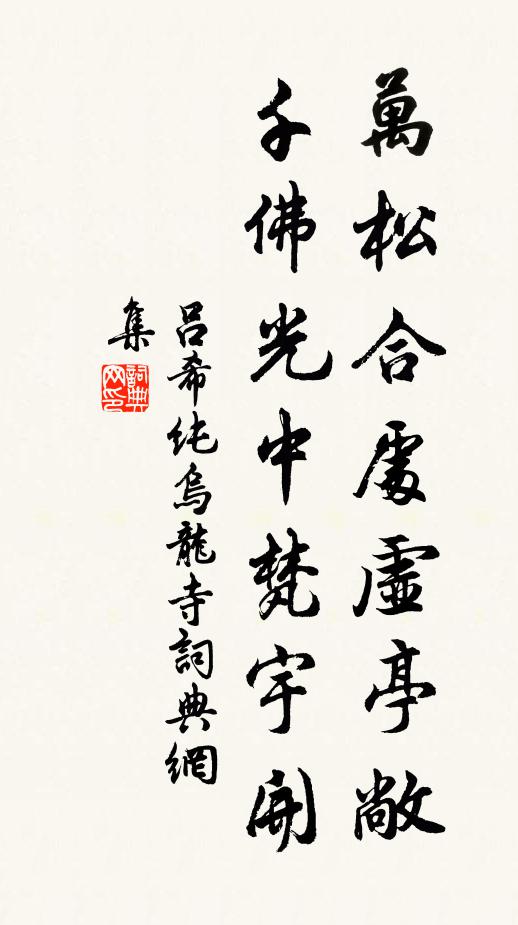 萬松合處虛亭敞
千佛光中梵宇開
呂希純烏龍寺詞典網
集
詞典
网印